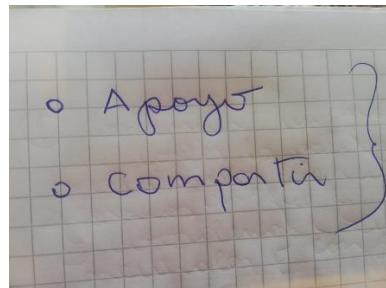 o Apoyo
o Compartir